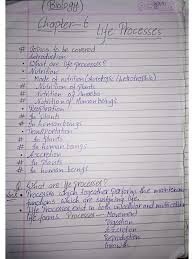 (Biology)
Chapter-6
Life Processes
# Topics to be covered
• Introduction
• What are life processes?
• Nutrition
• Mode of nutrition (Autotropic) (Heterotrophic)
# Nutrition of plants
# Nutrition of Amoeba
# Nutrition of Human beings
• Respiration
# In plants
# In human beings
• Transportation
# In plants
# In humans
• Excretion
# In Plants
# In human beings
Q. What are life processes?
• Processes which together perform the maintenance
functions which are sustaining life.
• Life Processes exist in both unicellular and multicellular
life forms. Processes - Movement
Excretion
Reproduction
Growth